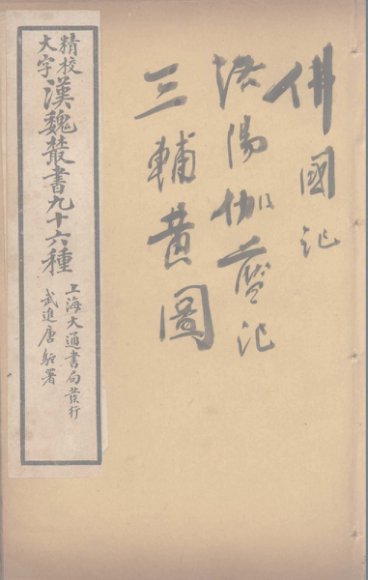 佛國记
洛陽伽藍记
三輔黄圖
精校
大字
漢魏叢書九十六種
上海大通書局發行
武進唐駝署